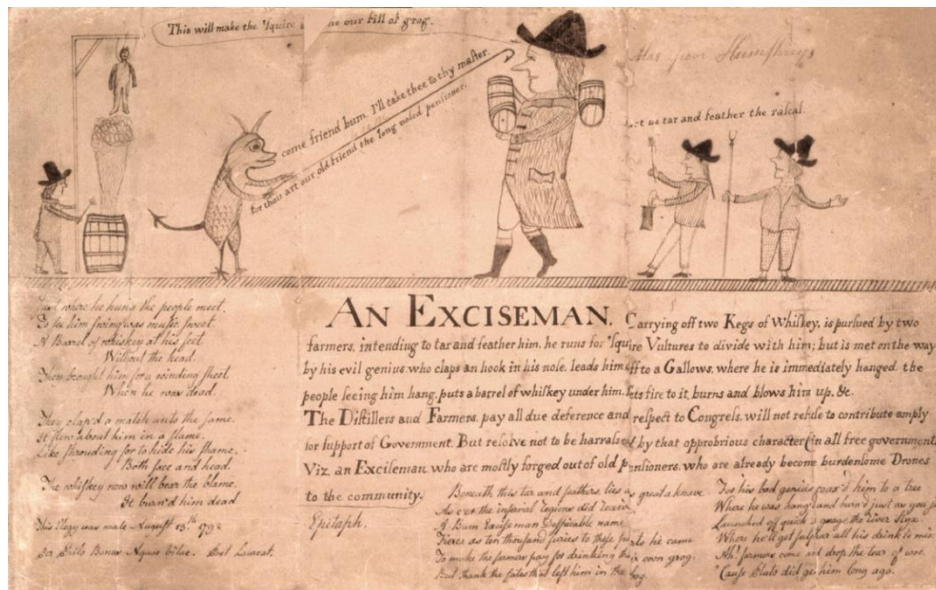 This will make the 'Squire our fill of grog.
come friend bum. I'll take thee to thy master.
for thou art our old friend the long nosed pensioner.
poor Humphreys
us tar and feather the rascal.
AN EXCISEMAN, Carrying off two Kegs of Whiskey, is pursued by two
farmers, intending to tar and feather him, he runs for 'Squire Vultures to divide with him; but is met on the way
by his evil genius who claps an hook in his nose, leads him off to a Gallows, where he is immediately hanged. the
people seeing him hang, puts a barrel of whiskey under him, sets fire to it, burns and blows him up, &c.
The Distillers and Farmers, pay all due deference and respect to Congress, will not refuse to contribute amply
for support of Government. But resolve not to be harrassed by that opprobrious character (in all free government
Viz. an Exciseman, who are mostly forged out of old pensioners, who are already become burdensome Drones
to the community.
Just where he hung the people meet.
To see him swing was music sweet.
A Barrel of whiskey at his feet.
Without the head.
They brought him for a winding sheet.
When he was dead.
They clap'd a match unto the same.
It flew about him in a flame.
Like shrouding for to hide his shame.
Both face and head.
The whiskey now will bear the blame.
It burn'd him dead
This Elegy was made August 13th 1792
Epitaph.
Beneath this tar and feathers, lies as great a knave
As ever the infernal legions did
A Bum Exciseman despicable name
Fierce as ten thousand furies to these he came
To make the farmers pay for drinking their own grog.
But thank the fates that left him in the bog.
For his bad genius coax'd him to a tree
Where he was hang'd and burn'd just as you
Launched
Where he'll get sulphur all his drink to mix
Ah! farmers come and drop the tear of woe.
'Cause Pluto did get him long ago.